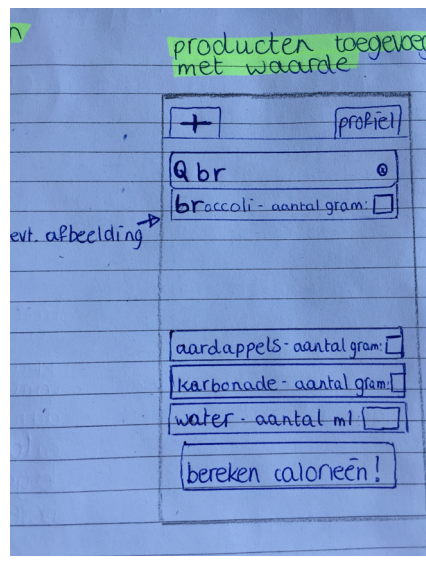 n
producten toegevoeg
met waarde
+
profiel
Q br
broccoli - aantal gram:
evt. afbeelding
aardappels - aantal gram:
karbonade - aantal gram:
water - aantal ml
bereken calorieën!